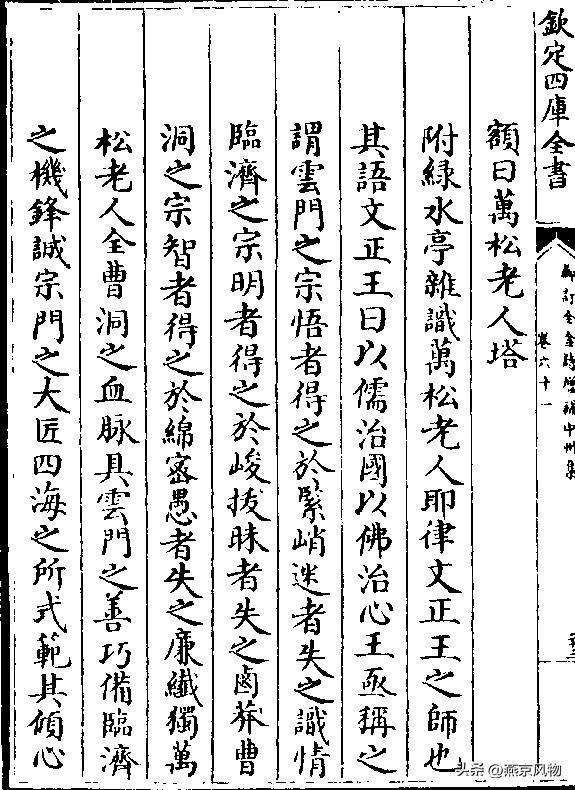 欽定四庫全書
御訂全金詩增補中州集
卷六十一
額曰萬松老人塔
附緑水亭雜識萬松老人耶律文正王之師也
其語文正王曰以儒治國以佛治心王亟稱之
謂雲門之宗悟者得之於緊峭迷者失之識情
臨濟之宗明者得之於峻拔昧者失之鹵莽曹
洞之宗智者得之於綿密愚者失之廉纖獨萬
松老人全曹洞之血脉具雲門之善巧備臨濟
之機鋒誠宗門之大匠四海之所式範其傾心
头条 @燕京风物